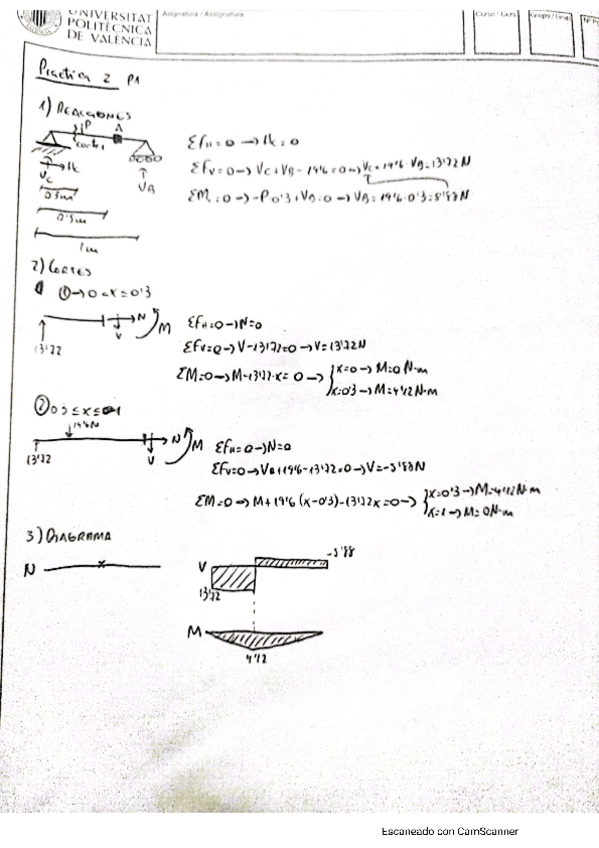 UNIVERSITAT
POLITÈCNICA
DE VALÈNCIA
Asignatura / Assignatura
Curso / Curs
Grupo / Grup
Practica 2 P1
1) REACCIONES
P
A
corte 1
Hc
Vc
VB
0'3m
0'5m
1m
ΣFH=0 → Hc=0
ΣFV=0 → Vc+VB-19'6=0 → Vc=19'6-VB=13'72N
ΣMc=0 → -P·0'3+VB=0 → VB=19'6·0'3=5'88N
2) CORTES
① → 0<x≤0'3
N
M
V
13'72
ΣFH=0 → N=0
ΣFV=0 → V-13'72=0 → V=13'72N
ΣM=0 → M-13'72·x=0 →
x=0 → M=0 N·m
x=0'3 → M=4'12N·m
② 0'3≤x≤1
19'6N
N
M
V
13'72
ΣFH=0 → N=0
ΣFV=0 → V+19'6-13'72=0 → V=-5'88N
ΣM=0 → M+19'6(x-0'3)-13'72x=0 →
x=0'3 → M=4'12N·m
x=1 → M=0N·m
3) DIAGRAMA
N
V
-5'88
13'72
M
4'12
Escaneado con CamScanner